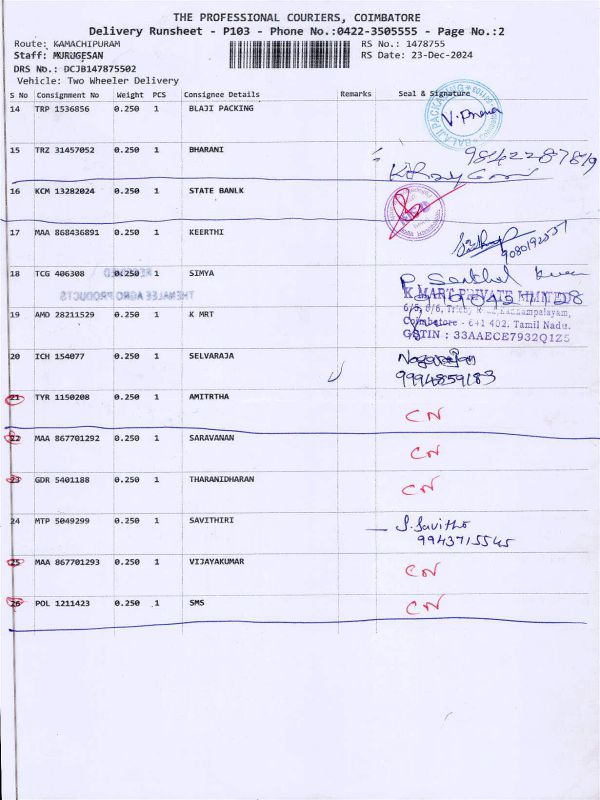 THE PROFESSIONAL COURIERS, COIMBATORE
Delivery Runsheet - P103 - Phone No.:0422-3505555 - Page No.:2
Route: KAMACHIPURAM RS No.: 1478755
Staff: MURUGESAN RS Date: 23-Dec-2024
DRS No.: DCJB147875502
Vehicle: Two Wheeler Delivery
S No Consignment No Weight PCS Consignee Details Remarks Seal & Signature
14 TRP 1536856 0.250 1 BLAJI PACKING
V. Prema
15 TRZ 31457052 0.250 1 BHARANI
9842287819
16 KCM 13282024 0.250 1 STATE BANLK
17 MAA 868436891 0.250 1 KEERTHI
9080192557
18 TCG 406308 0.250 1 SIMYA
THENNALEE AGRO PRODUCTS
K MART PRIVATE LIMITED
19 AMD 28211529 0.250 1 K MRT
Coimbatore - 641 402. Tamil Nadu.
GSTIN : 33AAECE7932Q1Z5
20 ICH 154077 0.250 1 SELVARAJA
9994859183
21 TYR 1150208 0.250 1 AMITRTHA CN
22 MAA 867701292 0.250 1 SARAVANAN CN
23 GDR 5401188 0.250 1 THARANIDHARAN CN
24 MTP 5049299 0.250 1 SAVITHIRI S. Savitho
9943715545
25 MAA 867701293 0.250 1 VIJAYAKUMAR CN
26 POL 1211423 0.250 1 SMS CN